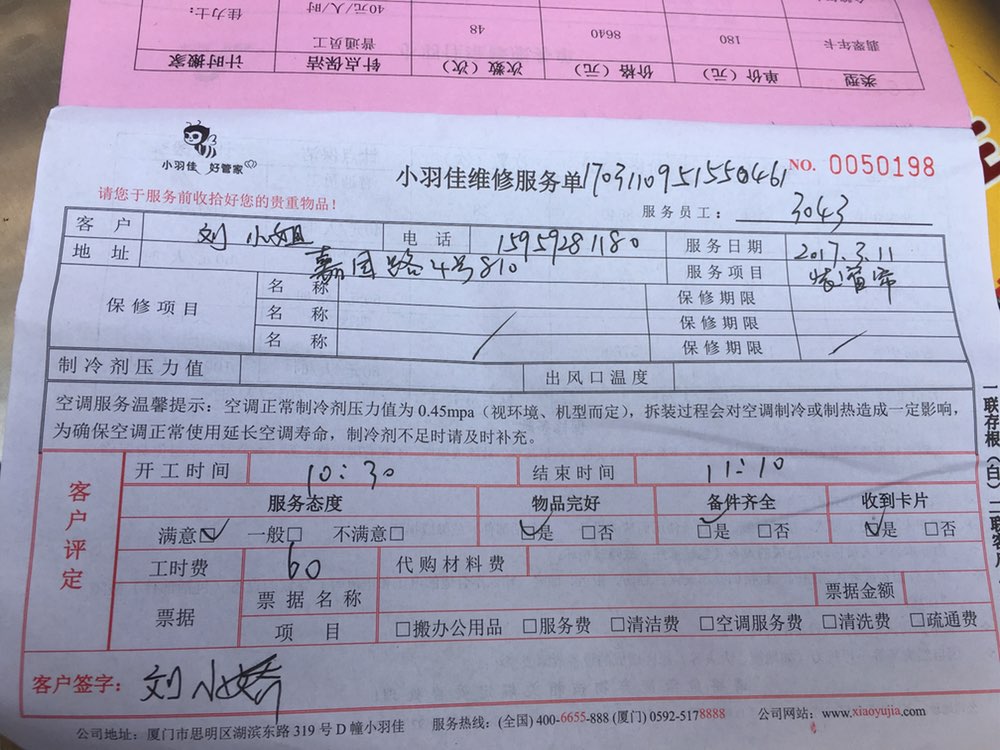 类型 单价（元） 价格（元） 次数（次） 针点保洁 计时搬家
翡翠年卡 180 8640 48 普通员工 佳力士：
40元/人/时
小羽佳 好管家
小羽佳维修服务单 1703110951550461 NO. 0050198
请您于服务前收拾好您的贵重物品！
服务员工： 3043
客户 刘小姐 电话 15959281180 服务日期 2017.3.11
地址 嘉园路4号810 服务项目 装窗帘
保修项目 名称 保修期限
名称 保修期限
名称 / 保修期限 /
制冷剂压力值 出风口温度
空调服务温馨提示：空调正常制冷剂压力值为0.45mpa（视环境、机型而定），拆装过程会对空调制冷或制热造成一定影响，
为确保空调正常使用延长空调寿命，制冷剂不足时请及时补充。
客户评定
开工时间 10：30 结束时间 11：10
服务态度 物品完好 备件齐全 收到卡片
满意☑ 一般□ 不满意□ ☑是 □否 ☑是 □否 ☑是 □否
工时费 60 代购材料费
票据 票据名称 票据金额
项目 □搬办公用品 □服务费 □清洁费 □空调服务费 □清洗费 □疏通费
客户签字： 刘小娇
公司地址：厦门市思明区湖滨东路319号D幢小羽佳 服务热线：(全国) 400-6655-888 (厦门) 0592-5178888 公司网站：www.xiaoyujia.com
一联存根（白）二联客户